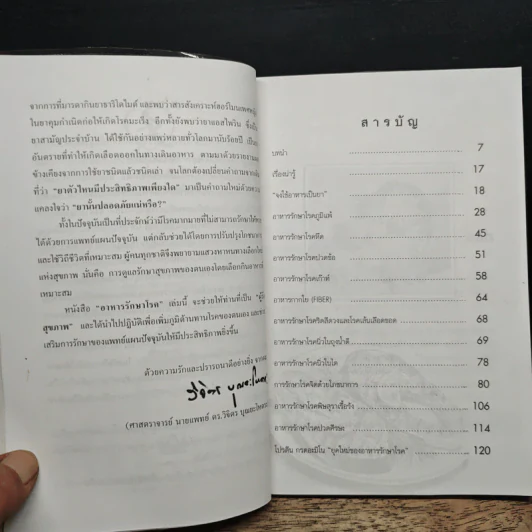 จากการที่มารดากินยาธาริโดไมด์ และพบว่าสารสังเคราะห์ฮอร์โมนเพศหญิง
ในยาคุมกำเนิดก่อให้เกิดโรคมะเร็ง อีกทั้งยังพบว่ายาแอสไพริน ซึ่งเป็น
ยาสามัญประจำบ้าน ได้ใช้กันอย่างแพร่หลายทั่วโลกมานับร้อยปี เป็น
อันตรายที่ทำให้เลือดออกในทางเดินอาหาร ตามมาด้วยรายงาน
ข้างเคียงจากการใช้ยาชนิดแล้วชนิดเล่า จนโลกต้องเปลี่ยนคำถามจากเดิม
ที่ว่า "ยาตัวไหนมีประสิทธิภาพเพียงใด" มาเป็นคำถามใหม่ด้วยความ
แคลงใจว่า "ยานั้นปลอดภัยแน่หรือ?"
ทั้งในปัจจุบันเป็นที่ประจักษ์ว่ามีโรคมากมายที่ไม่สามารถรักษาให้หาย
ได้ด้วยการแพทย์แผนปัจจุบัน แต่กลับช่วยได้โดยการปรับปรุงโภชนาการ
และใช้วิถีชีวิตที่เหมาะสม ผู้คนทุกชาติจึงพยายามแสวงหาหนทางเลือก
แห่งสุขภาพ นั่นคือ การดูแลรักษาสุขภาพของตนเองโดยเลือกกินอาหารที่
เหมาะสม
หนังสือ "อาหารรักษาโรค" เล่มนี้ จะช่วยให้ท่านที่เป็น
สุขภาพ" และได้นำไปปฏิบัติเพื่อเพิ่มภูมิต้านทานโรคของตนเอง และช่วย
เสริมการรักษาของแพทย์แผนปัจจุบันให้มีประสิทธิภาพยิ่งขึ้น
ด้วยความรักและปรารถนาดีอย่างยิ่ง จาก
(ศาสตราจารย์ นายแพทย์ ดร.วิจิตร บุณยะโหตระ)
สารบัญ
บทนำ 7
เรื่องน่ารู้ 17
"จงใช้อาหารเป็นยา" 18
อาหารรักษาโรคภูมิแพ้ 28
อาหารรักษาโรคหืด 45
อาหารรักษาโรคปวดข้อ 51
อาหารรักษาโรคเก๊าท์ 58
อาหารกากใย (FIBER) 64
อาหารรักษาโรคริดสีดวงและโรคเส้นเลือดขอด 68
อาหารรักษาโรคนิ่วในถุงน้ำดี 69
อาหารรักษาโรคนิ่วในไต 78
การรักษาโรคจิตด้วยโภชนาการ 80
อาหารรักษาโรคพิษสุราเรื้อรัง 106
อาหารรักษาโรคปวดศีรษะ 114
โปรตีน กรดอะมิโน "ยุคใหม่ของอาหารรักษาโรค" 120